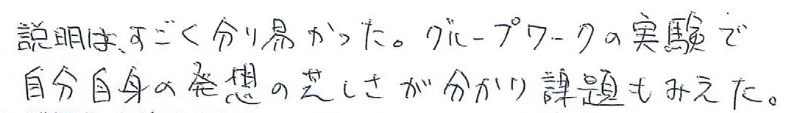 説明は、すごく分り易かった。グループワークの実験で
自分自身の発想の乏しさが分かり課題もみえた。